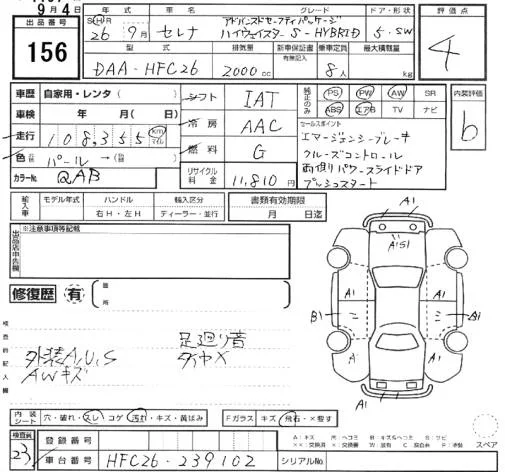 9月4日
出品番号
156
年式 車名 グレード ドア・形状
26 9月 セレナ アドバンスドセーフティパッケージ ハイウェイスター S-HYBRID 5.SW
型式 排気量 新車保証書 乗車定員 最大積載量
有無記入
DAA-HFC26 2000cc 8人 kg
評価点
4
車歴 自家用・レンタ( )
車検 年 月( 日)
走行 108,355 km マイル
色 パール→( )
カラーNo. QAB
シフト IAT
冷房 AAC
燃料 G
リサイクル料金 11,810円
純正のみ PS PW AW SR
ABS エアB TV ナビ
セールスポイント
エマージェンシーブレーキ
クルーズコントロール
両側パワースライドドア
プッシュスタート
内装評価
b
輸入車 モデル年式 ハンドル 輸入区分
右H・左H ディーラー・並行
書類有効期限
月 日迄
出品店申告欄
※注意事項等記載
修復歴 有 箇所
検査員記入欄
外装A,U,S
AWキズ
足廻り音
ダイヤX
A1
A1S1
A1 A1
B1 B1
A1 A1
A1
内装シート 穴・破れ・スレ・コゲ・汚れ・キズ・黄ばみ
Fガラス キズ・飛石・X要す
スペア
検査員 23
登録番号
車台番号 HFC26-239102 シリアルNo.